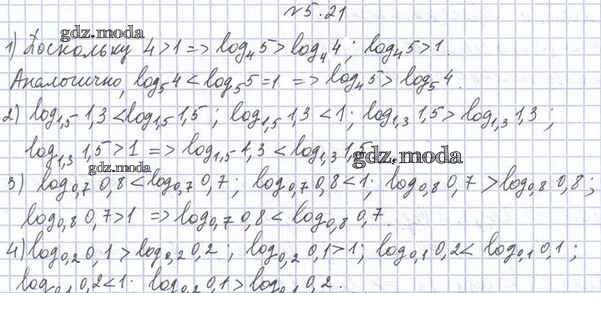 №5.21
gdz.moda
1) Поскольку 4>1 => log₄5>log₄4; log₄5>1.
Аналогично, log₅4<log₅5=1 => log₄5>log₅4.
2) log₁,₅1,3<log₁,₅1,5; log₁,₅1,3<1; log₁,₃1,5>log₁,₃1,3;
log₁,₃1,5>1 => log₁,₅1,3<log₁,₃1,5
gdz.moda
3) log₀,₇0,8<log₀,₇0,7; log₀,₇0,8<1; log₀,₈0,7>log₀,₈0,8;
log₀,₈0,7>1 => log₀,₇0,8<log₀,₈0,7.
gdz.moda
4) log₀,₂0,1>log₀,₂0,2; log₀,₂0,1>1; log₀,₁0,2<log₀,₁0,1;
log₀,₁0,2<1; log₀,₂0,1>log₀,₁0,2.